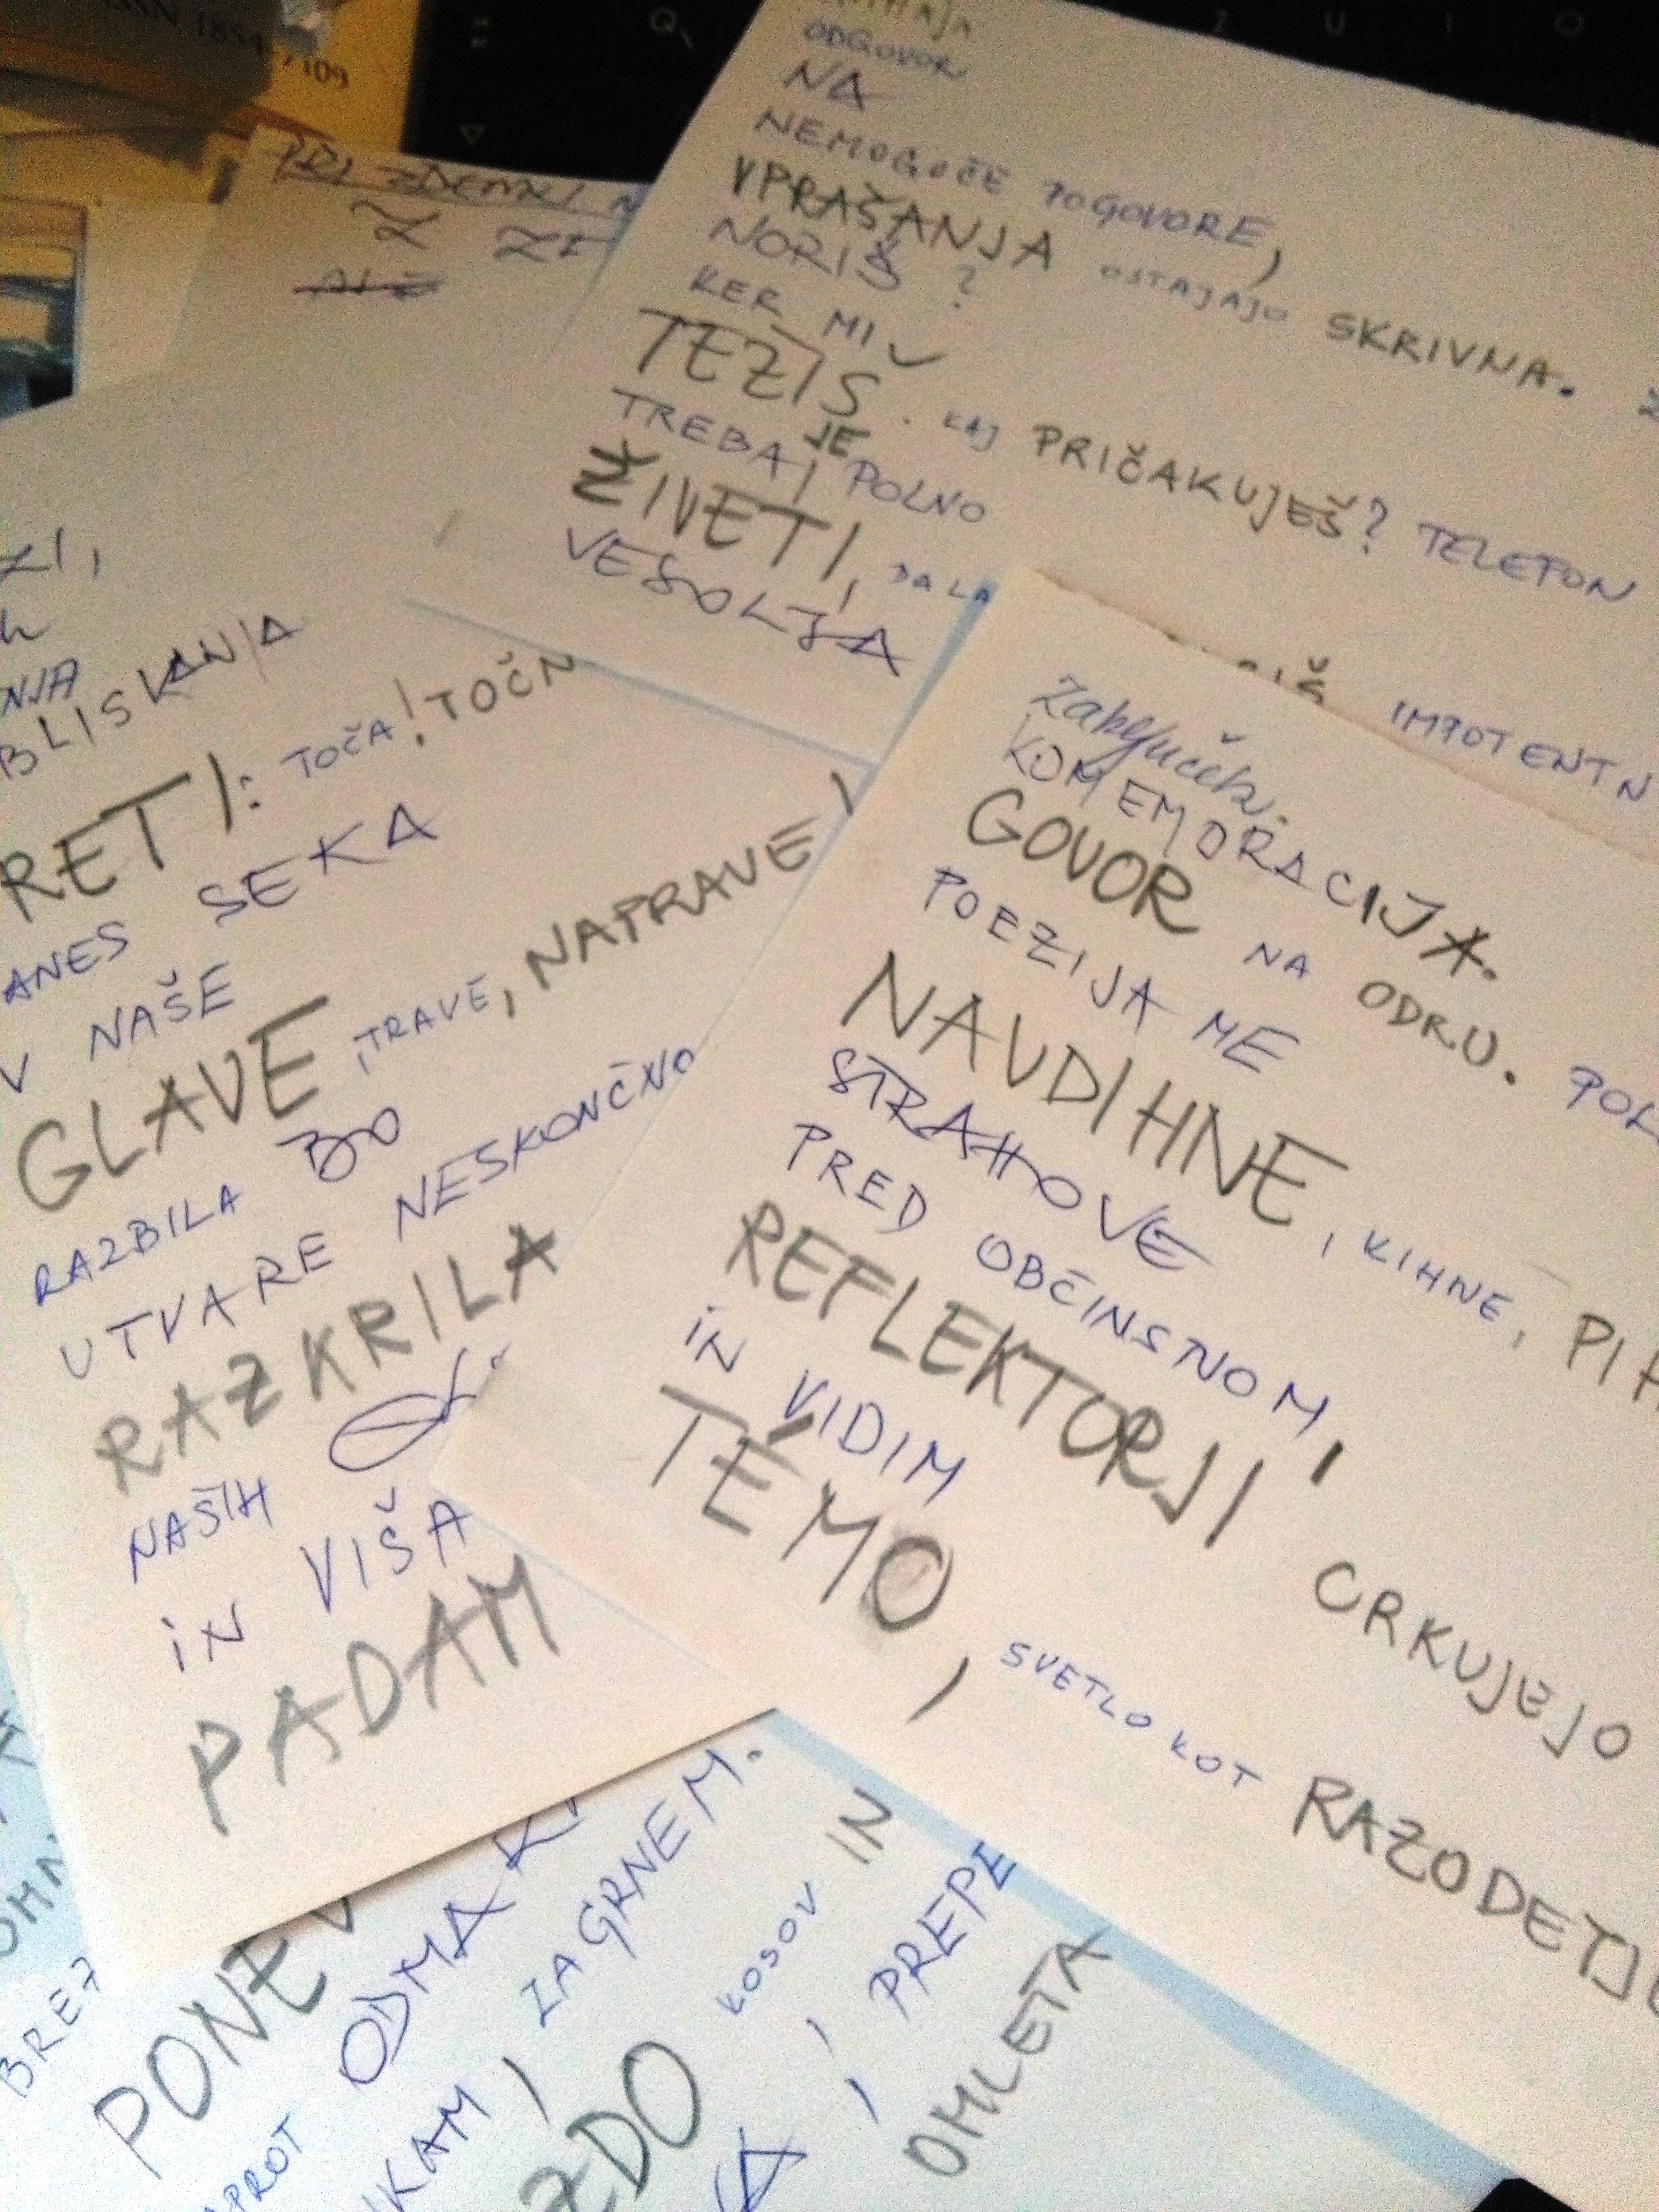 ISSN 1854
7109
Z U I O
ODGOVOR
NA
NEMOGOČE POGOVORE,
VPRAŠANJA OSTAJAJO SKRIVNA.
NORIŠ?
KER MI
TEŽIŠ. KAJ PRIČAKUJEŠ? TELEFON
TREBA JE POLNO
ŽIVETI, DA LA
VESOLJA
IMPOTENTN
NJA
BLISKANJA
RETI: TOČA! TOČN
ANES SEKA
V NAŠE
GLAVE, TRAVE, NAPRAVE!
RAZBILA BO
UTVARE NESKONČNO
RAZKRILA
NAŠIH
IN VIŠA
PADAM
Zaključek.
KOMEMORACIJA.
GOVOR NA ODRU. POL
POEZIJA ME
NAVDIHNE, KIHNE, PIH
STRAHOVE
PRED OBČINSTVOM,
REFLEKTORJI CRKUJEJO
IN VIDIM
TÉMO, SVETLO KOT RAZODETJ
BREZ
PONEV
ODMA
ZAGRNEM.
APROT
KAM,
ZDO KOSOV IN
PREPE
OMLETA